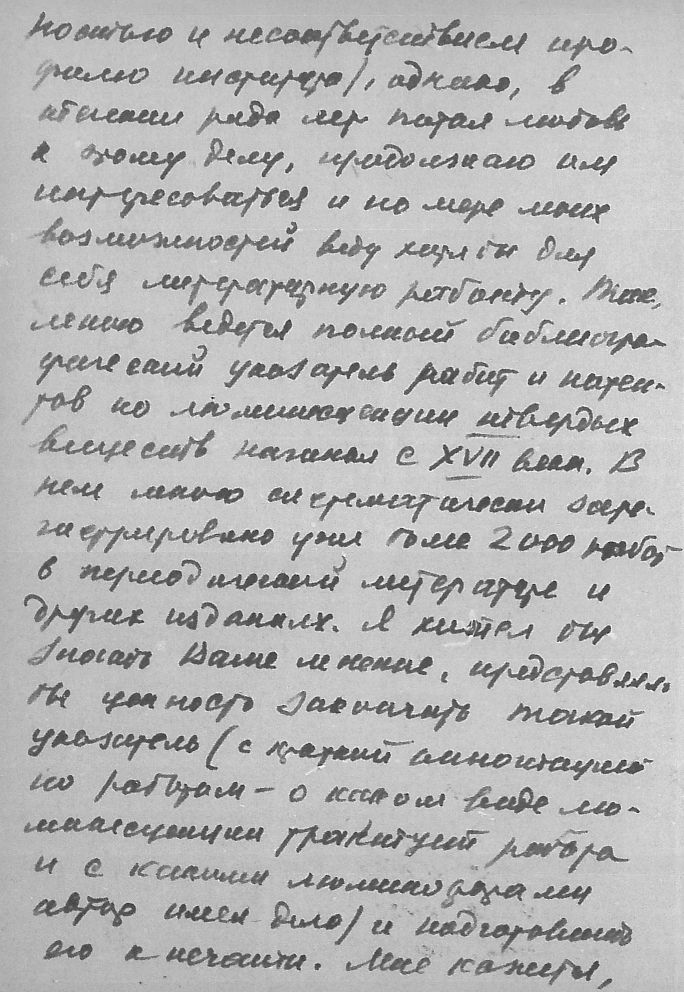 ностью и несоответствием про-
филю института), однако, в
течении ряда лет питая любовь
к этому делу, продолжаю им
интересоваться и по мере моих
возможностей веду хотя бы для
себя литературную работу.
мною ведется полный библиогра-
фический указатель работ и патен-
тов по люминисценции твердых
веществ начиная с XVII века. В
нем мною систематически заре-
гистрировано уже более 2000 работ
в периодической литературе и
других изданиях. Я хотел бы
знать Ваше мнение, представляло
бы ценность закончить такой
указатель (с краткой аннотацией
по работам – о каком виде лю-
минесценции трактует работа
и с какими люминофорами
автор имел дело) и подготовить
его к печати. Мне кажется,